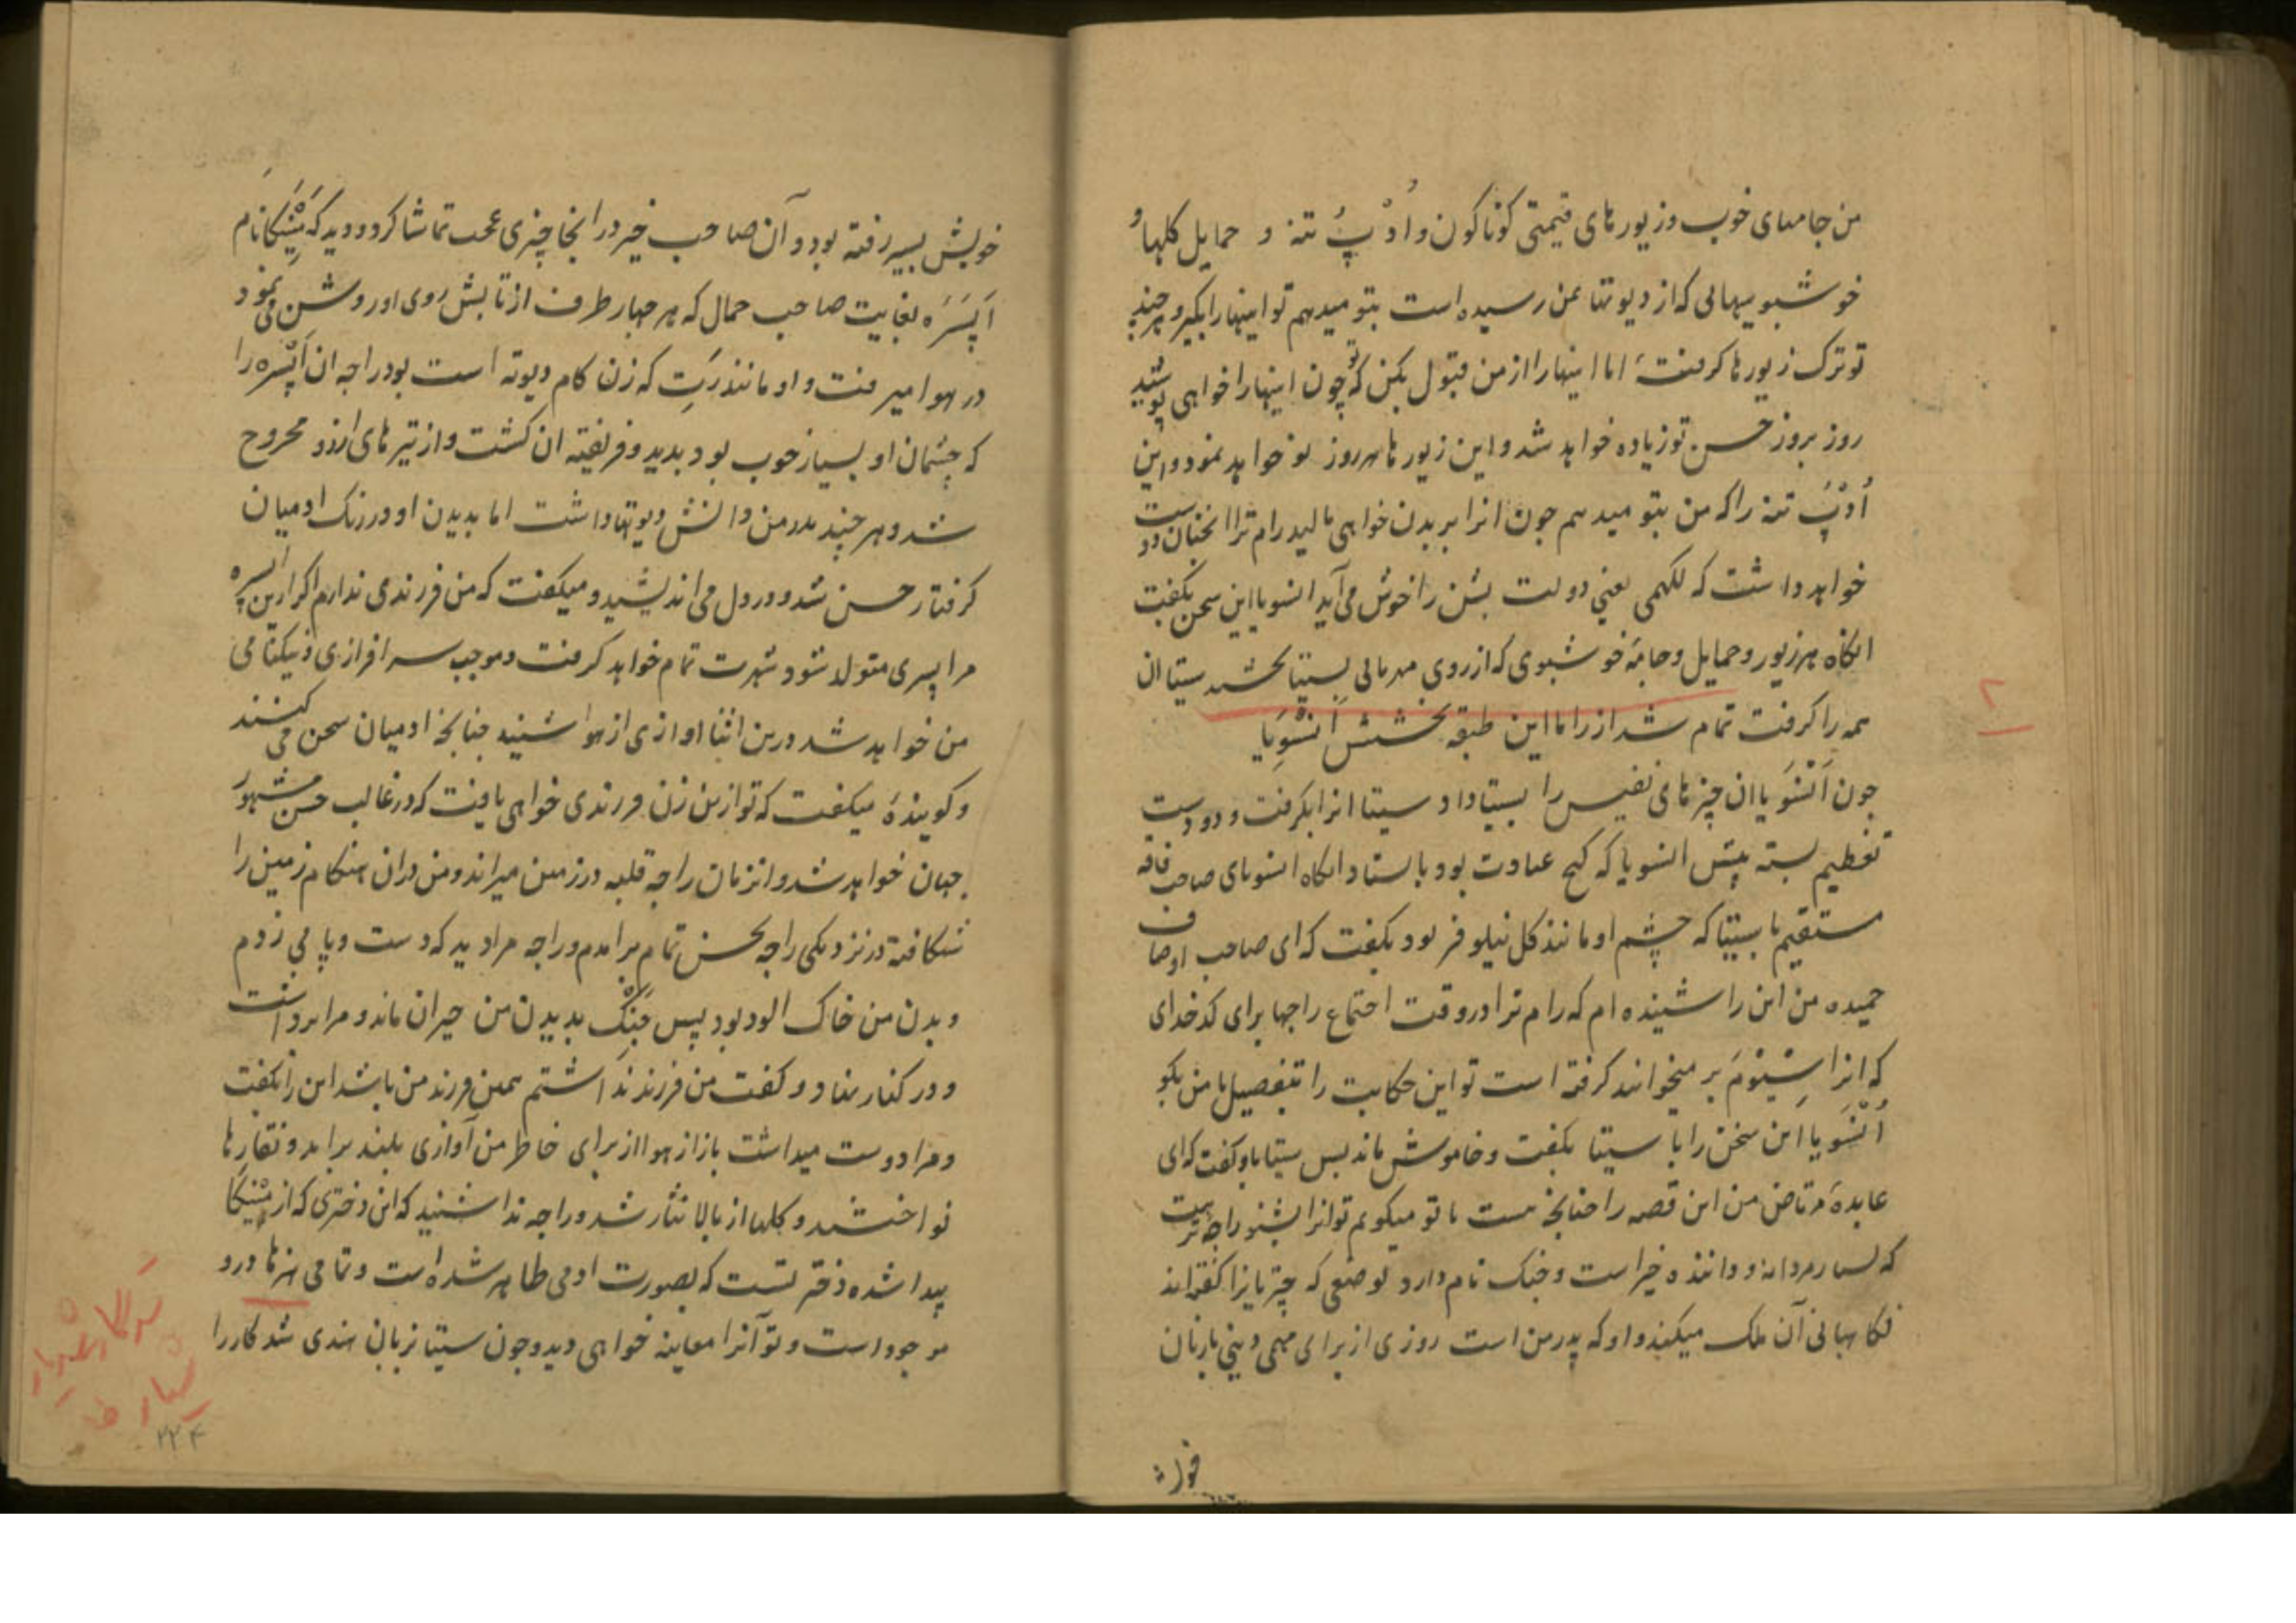 من جامهای خوب و زیورهای قیمتی کوناکون و اُدْپُ تنه و حمایل کلها و
خوشبوییهائی که از دیوتها بمن رسیده است بتو میدهم تو اینها را بکیر و هر چند
تو ترک زیورها کرفتهٔ اما اینها را از من قبول بکن که تو چون اینها را خواهی پوشید
روز بروز حسن تو زیاده خواهد شد و این زیورها هر روز نو خواهد نمود و این
اُدْپَ تنه را که من بتو میدهم چون انرا بر بدن خواهی مالید رام ترا انچنان دوست
خواهد داشت که لکهمی یعنی دولت بشن را خوش می آید انسویا این سخن بکفت
انکاه هر زیور و حمایل و جامهٔ خوشبوی که از روی مهربانی بسیتا بخشید سیتا ان
همه را کرفت تمام شد از راماین طبقه بخشش اَنسُویا
چون اَنسُویا ان چیزهای نفیس را بسیتا داد و سیتا انرا بکرفت و دو دست
تعظیم بسته پیش انسویا که کنج عبادت بود باستاد انکاه انسویای صاحب فاقه
مستقیم با سیتا که چشم او مانند کل نیلوفر بود بکفت که ای صاحب اوصاف
حمیده من این را شنیده ام که رام ترا در وقت اجتماع راجها برای کدخدای
که انرا سِیُومَ بر میخوانند کرفته است تو این حکایت را بتفصیل با من بکو
اَنسُویا این سخن را با سیتا بکفت و خاموش ماند پس سیتا باو کفت که ای
عابدهٔ مرتاض من این قصه را چنانچه هست با تو میکویم تو انرا بشنو راجه
که بسیار مردانه و داننده خیر است و جنک نام دارد بوضعی که چتریانرا کفته اند
نکاهبانی آن ملک میکند و او که پدر من است روزی از برای مهمی دینی با زنان
خویش بسیر رفته بود و آن صاحب خیر در انجا چیزی عجب تماشا کرد و دید که مَینَکا نام
اَپسَرَه بغایت صاحب جمال که هر چهار طرف از تابش روی او روشن می نمود
در هوا میرفت و او مانند رَتِ که زن کام دیوته است بود راجه ان اَپسره را
که چشمان او بسیار خوب بود بدید و فریفته ان کشت و از تیرهای ارزو مجروح
شد و هر چند پدر من دانش دیوتها داشت اما بدیدن او در رنک ادمیان
کرفتار حسن شد و در دل می اندیشید و میکفت که من فرزندی ندارم اکر ازین اپسره
مرا پسری متولد شود شهرت تمام خواهد کرفت و موجب سرافرازی و نیکنامی
من خواهد شد درین اثنا اوازی از هوا شنید چنانچه ادمیان سخن می کنند
و کویندهٔ میکفت که تو ازین زن فرزندی خواهی یافت که در غالب حسن مشهور
جهان خواهد شد و انزمان راجه قلبه در زمین میراند و من دران هنکام زمین را
شکافته در نزدیکی راجه بحسن تمام برامدم و راجه مرا دید که دست و پا می زدم
و بدن من خاک الود بود پس جَنَک بدیدن من حیران ماند و مرا برداشت
و در کنار نهاد و کفت من فرزند نداشتم همین فرزند من باشد این را بکفت
و مرا دوست میداشت باز از هوا از برای خاطر من آوازی بلند برامد و نقارها
نواختند و کلها از بالا نثار شد و راجه ندا شنید که این دختری که از مَینَکا
پیدا شده دختر تست که بصورت ادمی ظاهر شده است و تمامی هنرها در و
موجود است و تو آنرا معاینه خواهی دید و چون سیتا بزبان هندی شد کار را
۲۲۴